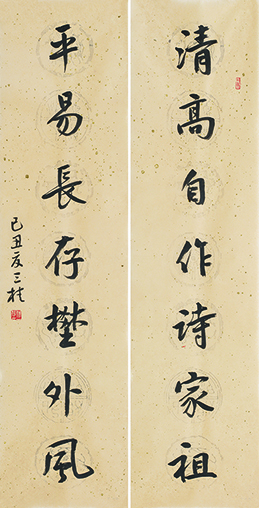 清高自作诗家祖
平易長存樊外風
己丑夏三桂